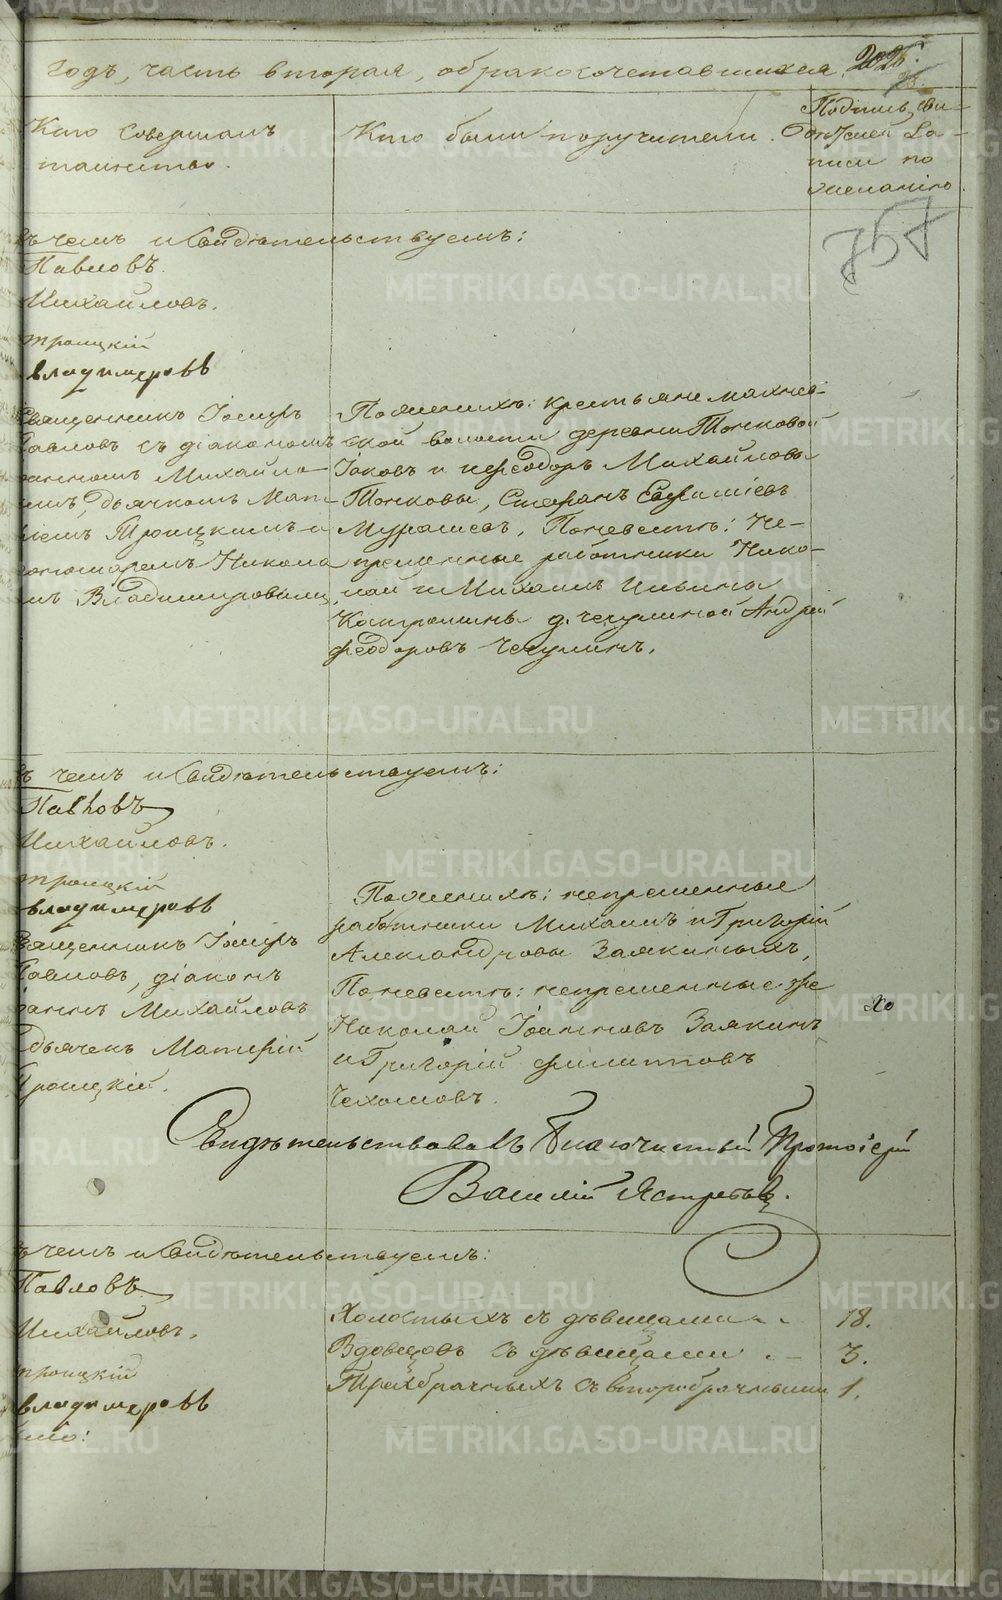 годъ, часть вторая, о бракосочетавшихся.
Кто совершалъ
таинство.
Кто были поручители.
Подпись сви-
дѣтелей за-
писи по
желанію.
757
въ чемъ и свидѣтельствуемъ:
Павловъ.
Михайловъ.
Троицкій
Владимеровъ
Священникъ Іосифъ
Павловъ съ діакономъ
Михайло-
дьячкомъ
Троицкимъ и
пономаремъ Никола
Владимировымъ
По женихѣ: крестьяне махнев-
ской волости деревни Тонковой
Іаковъ и Ѳеодоръ Михайловы
Тонковы, Стефанъ
Мурашевъ. По невестѣ: не-
пременные работники Нико-
лай и Михаилъ Ильины
д. Чечулиной Андрей
Феодоровъ Чечулинъ.
въ чемъ и свидѣтельствуемъ:
Павловъ
Михайловъ.
Троицкій
Владимеровъ
Священникъ Іосифъ
Павловъ, діаконъ
Іоаннъ Михайловъ,
дьячекъ
Троицкій.
По женихѣ: непременные
работники Михаилъ и Григорій
Александровы Заякиныхъ,
По невестѣ: непременные же
Николай Іоанновъ Заякинъ
и Григорій Филипповъ
Чехомовъ.
Свидѣтельствовалъ Благочинный Протоіерей
Василій Ястребовъ.
въ чемъ и свидѣтельствуемъ:
Павловъ
Михайловъ.
Троицкій
Владимеровъ
Холостыхъ съ дѣвицами 18.
Вдовцовъ съ дѣвицами 3.
Троебрачныхъ съ второбрачными 1.
METRIKI.GASO-URAL.RU